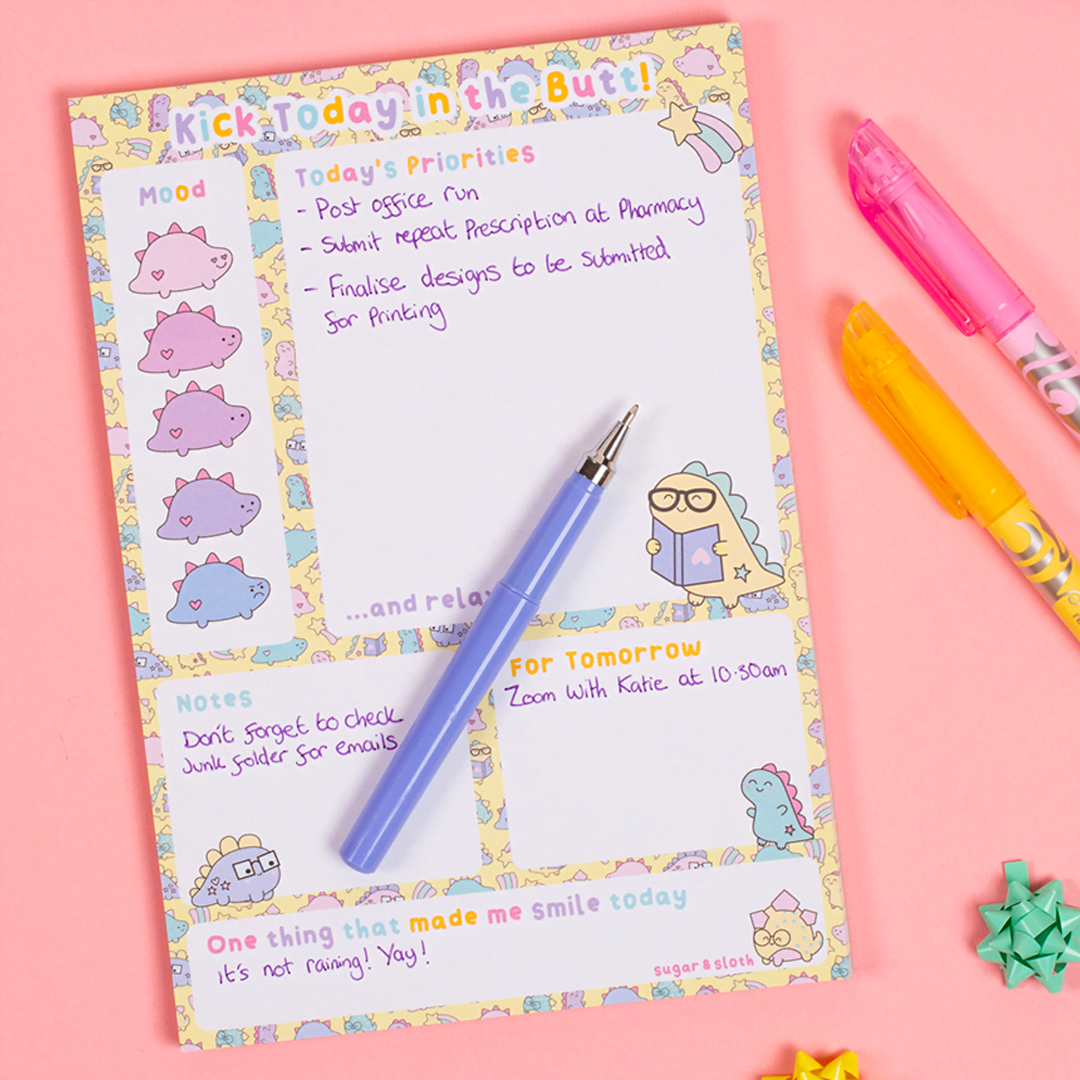 Kick Today in the Butt!
Mood
Today's Priorities
- Post office run
- Submit repeat Prescription at Pharmacy
- Finalise designs to be submitted
for Printing
...and
Notes
Don't forget to check
Junk folder for emails
For Tomorrow
Zoom with Katie at 10.30am
One thing that made me smile today
it's not raining! Yay!
sugar & sloth